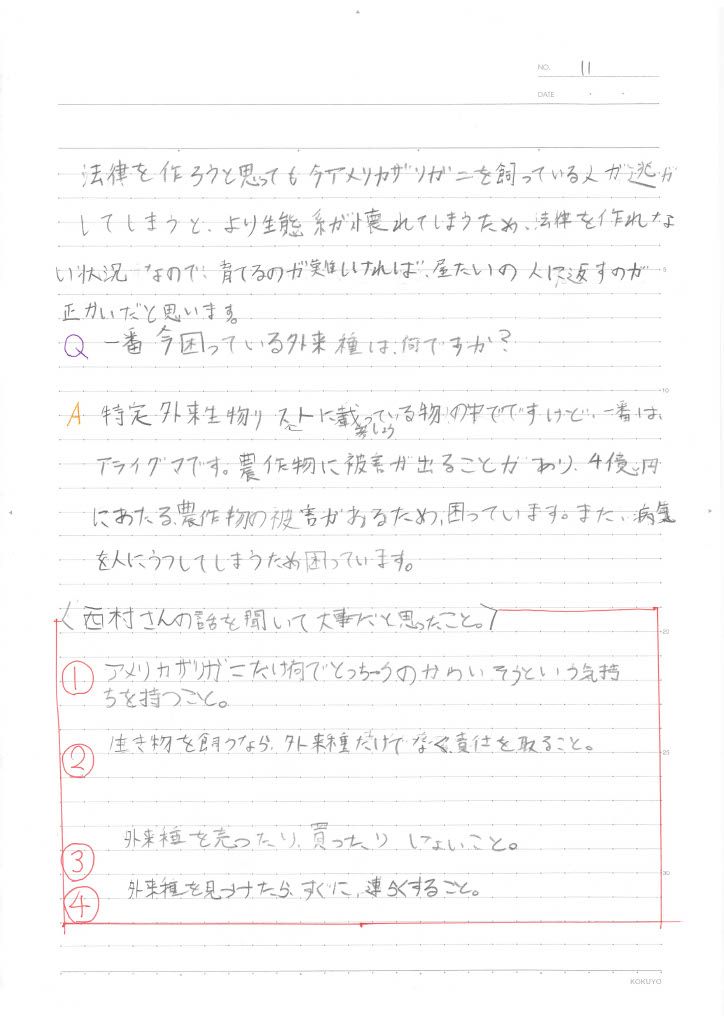 NO. 11
DATE
法律を作ろうと思っても今アメリカザリガニを飼っている人が逃が
してしまうと、より生態系が壊れてしまうため、法律を作れな
い状況なので、育てるのが難しければ、屋たいの人に返すのが
正かいだと思います。
Q 一番今困っている外来種は、何ですか?
A 特定外来生物リストに載っている物の中でですけど、一番は、
アライグマです。農作物に被害が出ることがあり、4億円
にあたる、農作物の被害があるため、困っています。また、病気
を人にうつしてしまうため困っています。
〈西村さんの話を聞いて大事だと思ったこと。〉
① アメリカザリガニだけ何でとっちゃうのかわいそうという気持
ちを持つこと。
② 生き物を飼うなら、外来種だけでなく、責任を取ること。
③ 外来種を売ったり、買ったりしないこと。
④ 外来種を見つけたら、すぐに、連らくすること。
KOKUYO